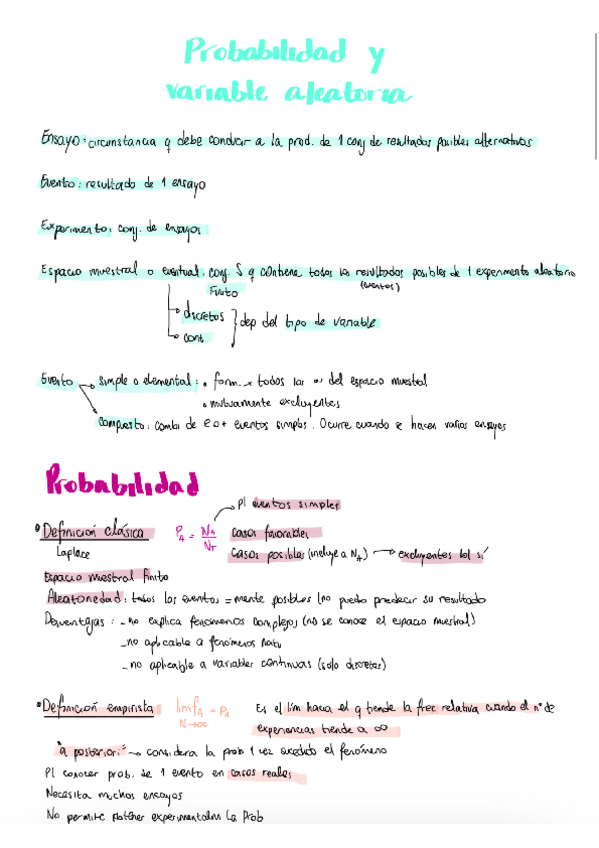 Probabilidad y
variable aleatoria
Ensayo: circunstancia q debe conducir a la prod. de 1 conj de resultados posibles alternativos
Evento: resultado de 1 ensayo
Experimento: conj. de ensayos
Espacio muestral o eventual: conj. S q contiene todos los resultados posibles de 1 experimento aleatorio
Finito (eventos)
discretos
dep del tipo de variable
cont
Evento simple o elemental: • form. x todos los del espacio muestral
• mutuamente excluyentes
Compuesto: combi de 2 o + eventos simples. Ocurre cuando se hacen varios ensayos
Probabilidad
P| eventos simples
• Definición clásica P_A = N_A / N_T casos favorables
Laplace casos posibles (incluye a N_A) → excluyentes
Espacio muestral finito
Aleatoriedad: todos los eventos = mente posibles (no puedo predecir su resultado
Desventajas: - no explica fenómenos complejos (no se conoce el espacio muestral)
- no aplicable a fenómenos
- no aplicable a variables continuas (solo discretas)
• Definición empirista lim f_A = P_A Es el lím hacia el q tiende la frec relativa cuando el nº de
N→∞ experiencias tiende a ∞
"a posteriori" → considera la prob 1 vez sucedido el fenómeno
P| conocer prob. de 1 evento en casos reales
Necesita muchos ensayos
No permite obtener experimentados la Prob